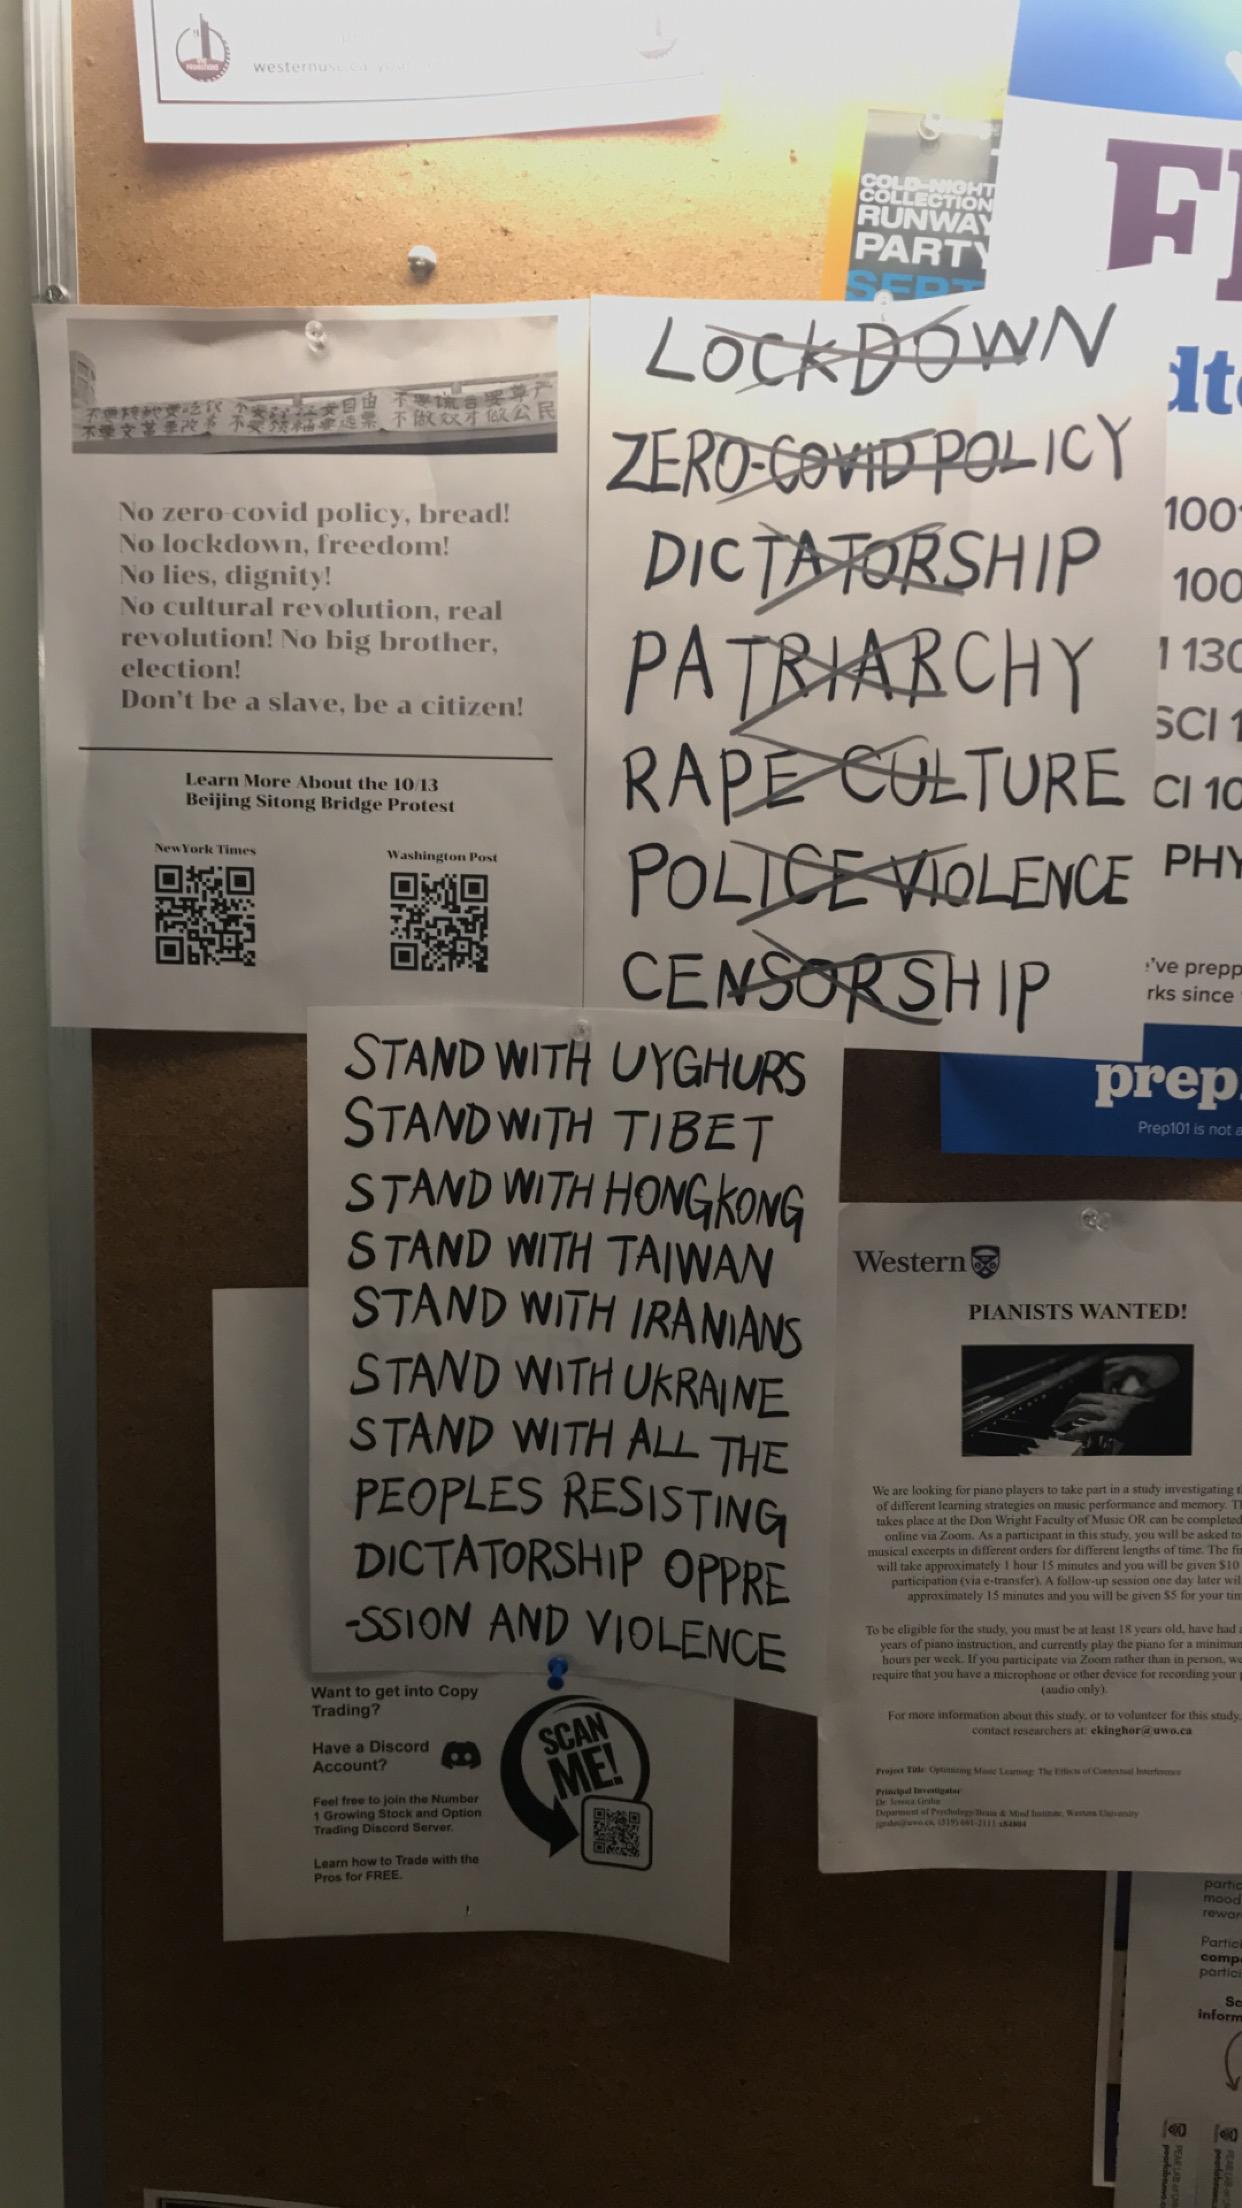 COLD-NIGHT
COLLECTION
RUNWAY
PARTY
SEPT
不要核酸要吃饭 不要封控要自由 不要谎言要尊严
不要文革要改革 不要领袖要选票 不做奴才做公民
No zero-covid policy, bread!
No lockdown, freedom!
No lies, dignity!
No cultural revolution, real
revolution! No big brother,
election!
Don't be a slave, be a citizen!
Learn More About the 10/13
Beijing Sitong Bridge Protest
NewYork Times
Washington Post
LOCKDOWN
ZERO-COVID POLICY
DICTATORSHIP
PATRIARCHY
RAPE CULTURE
POLICE VIOLENCE
CENSORSHIP
100
100
130
SCI 1
CI 10
PHY
've prepp
rks since
prep
Prep101 is not a
STAND WITH UYGHURS
STAND WITH TIBET
STAND WITH HONGKONG
STAND WITH TAIWAN
STAND WITH IRANIANS
STAND WITH UKRAINE
STAND WITH ALL THE
PEOPLES RESISTING
DICTATORSHIP OPPRE
-SSION AND VIOLENCE
Western
PIANISTS WANTED!
We are looking for piano players to take part in a study investigating
of different learning strategies on music performance and memory.
takes place at the Don Wright Faculty of Music OR can be completed
online via Zoom. As a participant in this study, you will be asked to
musical excerpts in different orders for different lengths of time. The
will take approximately 1 hour 15 minutes and you will be given $10
participation (via e-transfer). A follow-up session one day later
approximately 15 minutes and you will be given $5 for your
To be eligible for the study, you must be at least 18 years old, have had
years of piano instruction, and currently play the piano for a
hours per week. If you participate via Zoom rather than in person,
require that you have a microphone or other device for recording your
(audio only).
For more information about this study, or to volunteer for this study,
contact researchers at: ekinghor@uwo.ca
Project Title: Optimizing Music Learning: The Effects of Contextual Interference
Principal Investigator:
Dr. Jessica Grahn
Department of Psychology/Brain & Mind Institute, Western University
jgrahn@uwo.ca, (519) 661-2111 x84804
Want to get into Copy
Trading?
Have a Discord
Account?
Feel free to join the Number
1 Growing Stock and Option
Trading Discord Server.
Learn how to Trade with the
Pros for FREE.
SCAN
ME!
mood